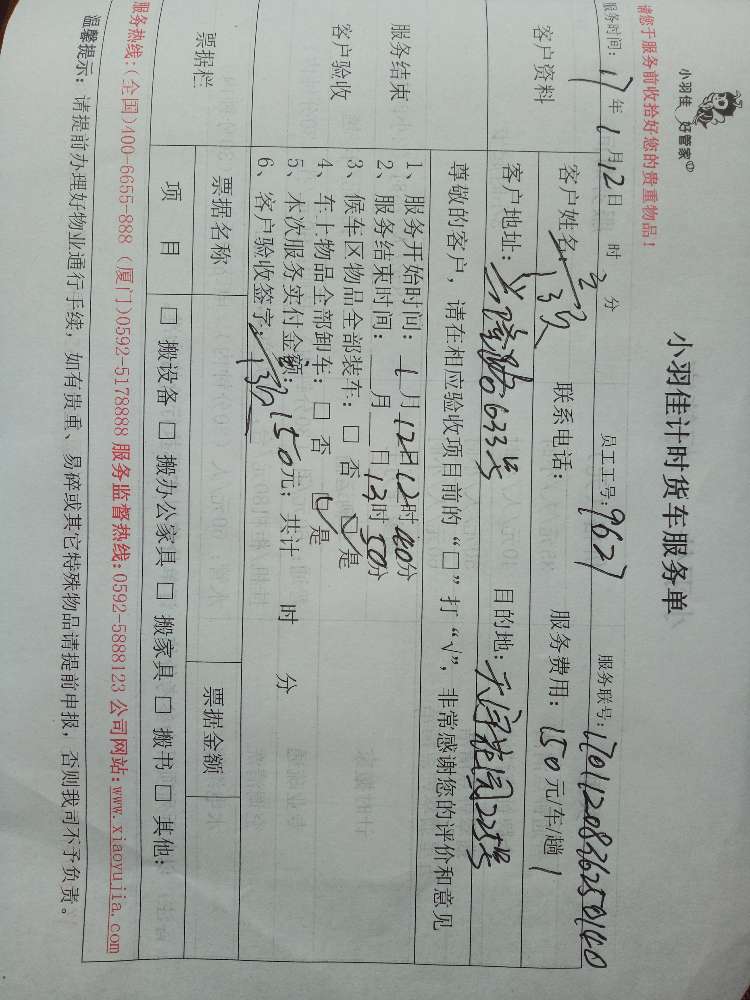 小羽佳 好管家
请您于服务前收拾好您的贵重物品！
小羽佳计时货车服务单
服务时间：17年1月12日 时 分 员工工号：9627 服务联号：1701120836250140
客户资料
客户姓名： 联系电话： 服务费用：150元/车/趟
客户地址： 633号 目的地： 花园225号
尊敬的客户，请在相应验收项目前的“□”打“√”，非常感谢您的评价和意见
服务结束
客户验收
1、服务开始时间：1月12日12时40分
2、服务结束时间：__月__日13时50分
3、候车区物品全部装车：□ 否 ☑ 是
4、车上物品全部卸车：□ 否 ☑ 是
5、本次服务实付金额：150元；共计 时 分
6、客户验收签字：
票据栏 票据名称 票据金额
项 目 □ 搬设备 □ 搬办公家具 □ 搬家具 □ 搬书 □ 其他：
服务热线：(全国)400-6655-888 (厦门)0592-5178888 服务监督热线：0592-5888123 公司网站：www.xiaoyujia.com
温馨提示：请提前办理好物业通行手续，如有贵重、易碎或其它特殊物品请提前申报，否则我司不予负责。